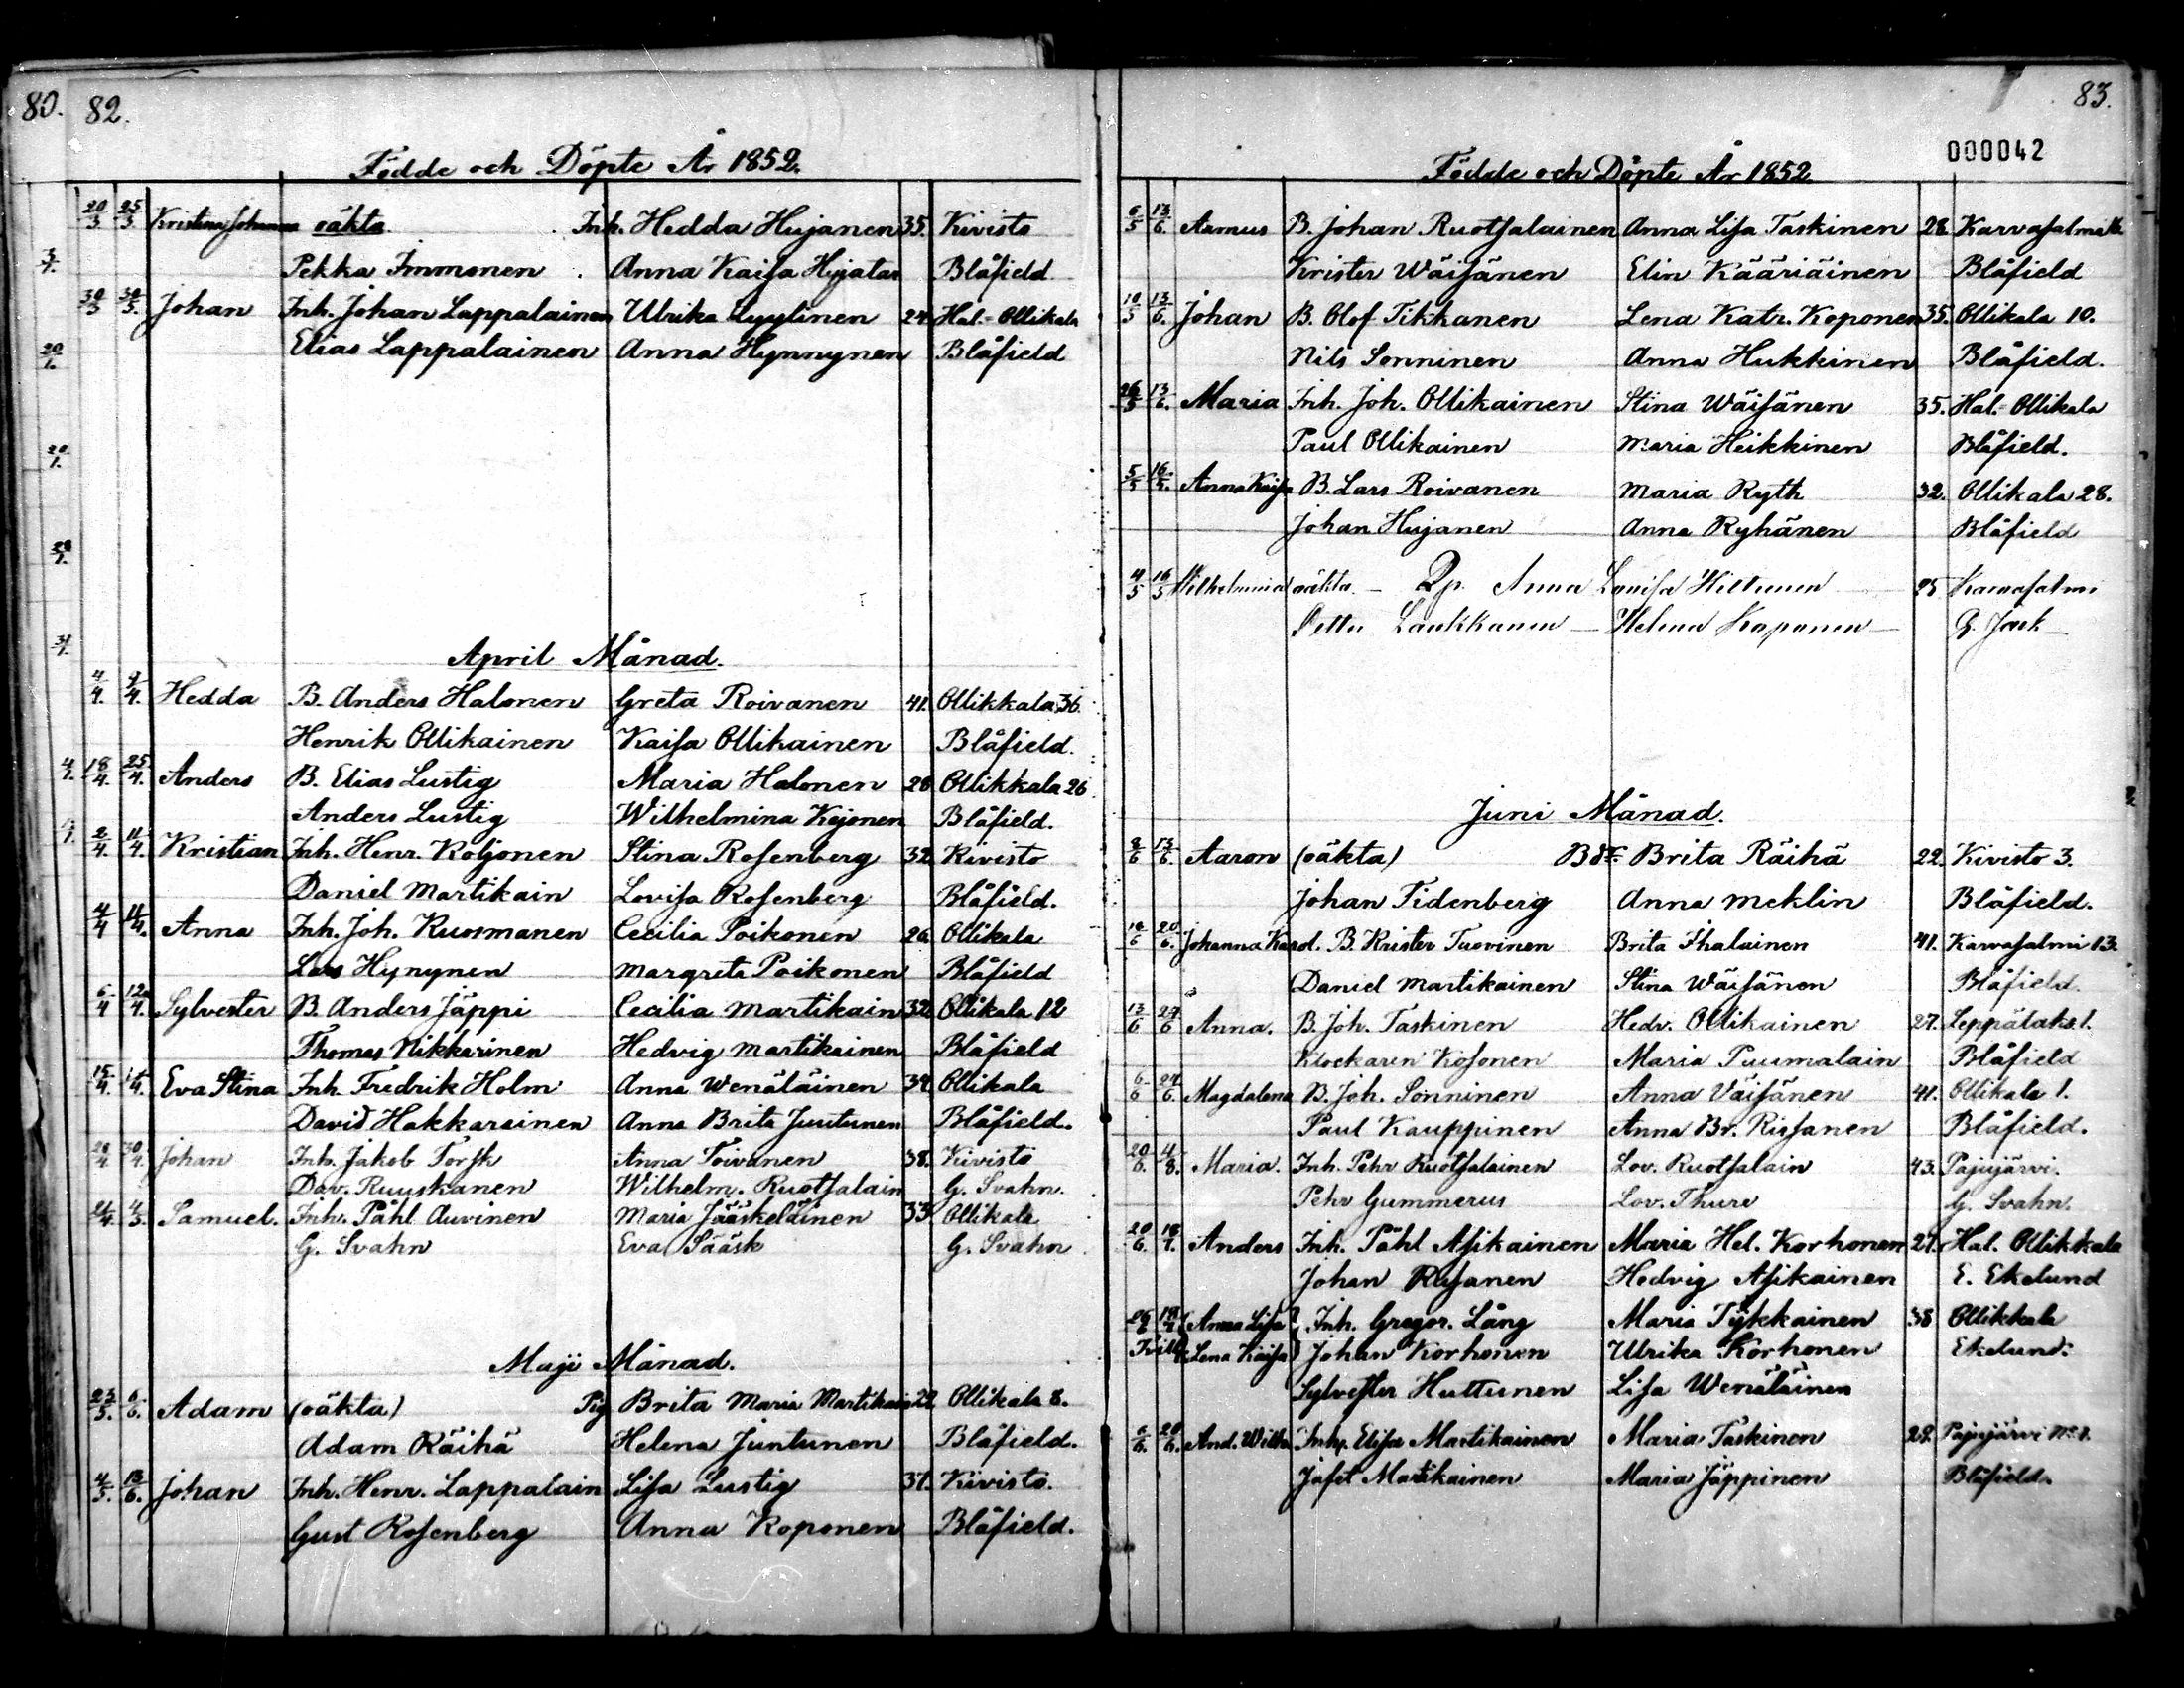 80. 82.
Födde och Döpte År 1852.
20/3 25/3 Kristina Johanna oäkta Inh. Hedda Hujanen 35. Kivisto
Pekka Immonen Anna Kaisa Hyjatar Blåfield
30/3 30/3. Johan Inh. Johan Lappalainen Ulrika Lyylinen 24. Hal.-Ollikala
Elias Lappalainen Anna Hynnynen Blåfield
April Månad.
4/4. 9/4. Hedda B. Anders Halonen Greta Roivanen 41. Ollikkala 36.
Henrik Ollikainen Kaisa Ollikainen Blåfield.
18/4. 25/4. Anders B. Elias Lustig Maria Halonen 28 Ollikkala 26
Anders Lustig Wilhelmina Kejonen Blåfield.
2/4. 11/4. Kristian Inh. Henr. Koljonen Stina Rosenberg 32 Kivisto
Daniel Martikain Lovisa Rosenberg Blåfield.
4/4 11/4. Anna Inh. Joh. Ruosmanen Cecilia Poikonen 26 Ollikala
Lars Hynynen Margreta Poikonen Blåfield
6/4 12/4. Sylvester B. Anders Jäppi Cecilia Martikain 32 Ollikala 12
Thomas Nikkarinen Hedvig Martikainen Blåfield
15/4. Eva Stina Inh. Fredrik Holm Anna Wenäläinen 34 Ollikala
David Hakkarainen Anna Brita Juutunen Blåfield.
28/4 30/4. Johan Inh. Jakob Torsk Anna Toivanen 38. Kivistö
Dav. Ruuskanen Wilhelm. Ruotsalain G. Svahn.
21/4. 4/5. Samuel. Inh. Påhl Auvinen Maria Jääskeläinen 33 Ollikala
G. Svahn Eva Sääsk G. Svahn
Maji Månad.
23/5. 6/6. Adam (oäkta) Pig. Brita Maria Martikain 22 Ollikala 8.
Adam Räihä Helena Juntunen Blåfield.
4/5. 13/6. Johan Inh. Henr. Lappalain Lisa Lustig 37. Kivisto.
Gust Rosenberg Anna Koponen Blåfield.
83.
000042
Födde och Döpte År 1852
6/5 13/6. Aamus B. Johan Ruotsalainen Anna Lisa Taskinen 28 Karvasalmi
Krister Wäisänen Elin Kääriäinen Blåfield
10/5 13/6. Johan B. Olof Tikkanen Lena Katr. Koponen 35. Ollikala 10.
Nils Sonninen Anna Hukkinen Blåfield.
26/5 13/6. Maria Inh. Joh. Ollikainen Stina Wäisänen 35. Hal.-Ollikala
Paul Ollikainen Maria Heikkinen Blåfield.
5/5 16/5. Anna Kaisa B. Lars Roivanen Maria Ryth 32. Ollikala 28.
Johan Hujanen Anna Ryhänen Blåfield
4/5 16/5 Wilhelmina oäkta - Anna Lovisa Hiltunen 25 Karvasalmi
Petter Laukkanen - Helena Koponen -
Juni Månad.
8/6 13/6. Aaron (oäkta) Bdr. Brita Räihä 22. Kivisto 3.
Johan Tidenberg Anna Meklin Blåfield.
16/6 20/6. Johanna Karol. B. Krister Tuovinen Brita Ihalainen 41. Karvasalmi 13.
Daniel Martikainen Stina Wäisänen Blåfield.
13/6 27/6 Anna. B. Joh. Taskinen Hedv. Ollikainen 27. Leppälaks 1.
Klockaren Kosonen Maria Puumalain Blåfield
6/6 27/6. Magdalena B. Joh. Sonninen Anna Väisänen 41. Ollikala 1.
Paul Kauppinen Anna Br. Rissanen Blåfield.
20/6. 4/8. Maria. Inh. Pehr Ruotsalainen Lov. Ruotsalain 43. Pajujärvi.
Pehr Gummerus Lov. Thure G. Svahn.
20/6. 18/7. Anders Inh. Påhl Asikainen Maria Hel. Korhonen 27. Hal. Ollikkala
Johan Rusanen Hedvig Asikainen E. Ekelund
26/6 Anna Lisa Inh. Gregor. Lång Maria Tykkainen 38 Ollikkala
Tvill. Lena Kaisa Johan Korhonen Ulrika Korhonen Ekelund.
Sylvester Huttunen Lisa Wenäläinen
6/6. 20/6. And. Wilh. Inh. Elisa Martikainen Maria Taskinen 29. Pajujärvi
Jafet Martikainen Maria Jäppinen Blåfield.